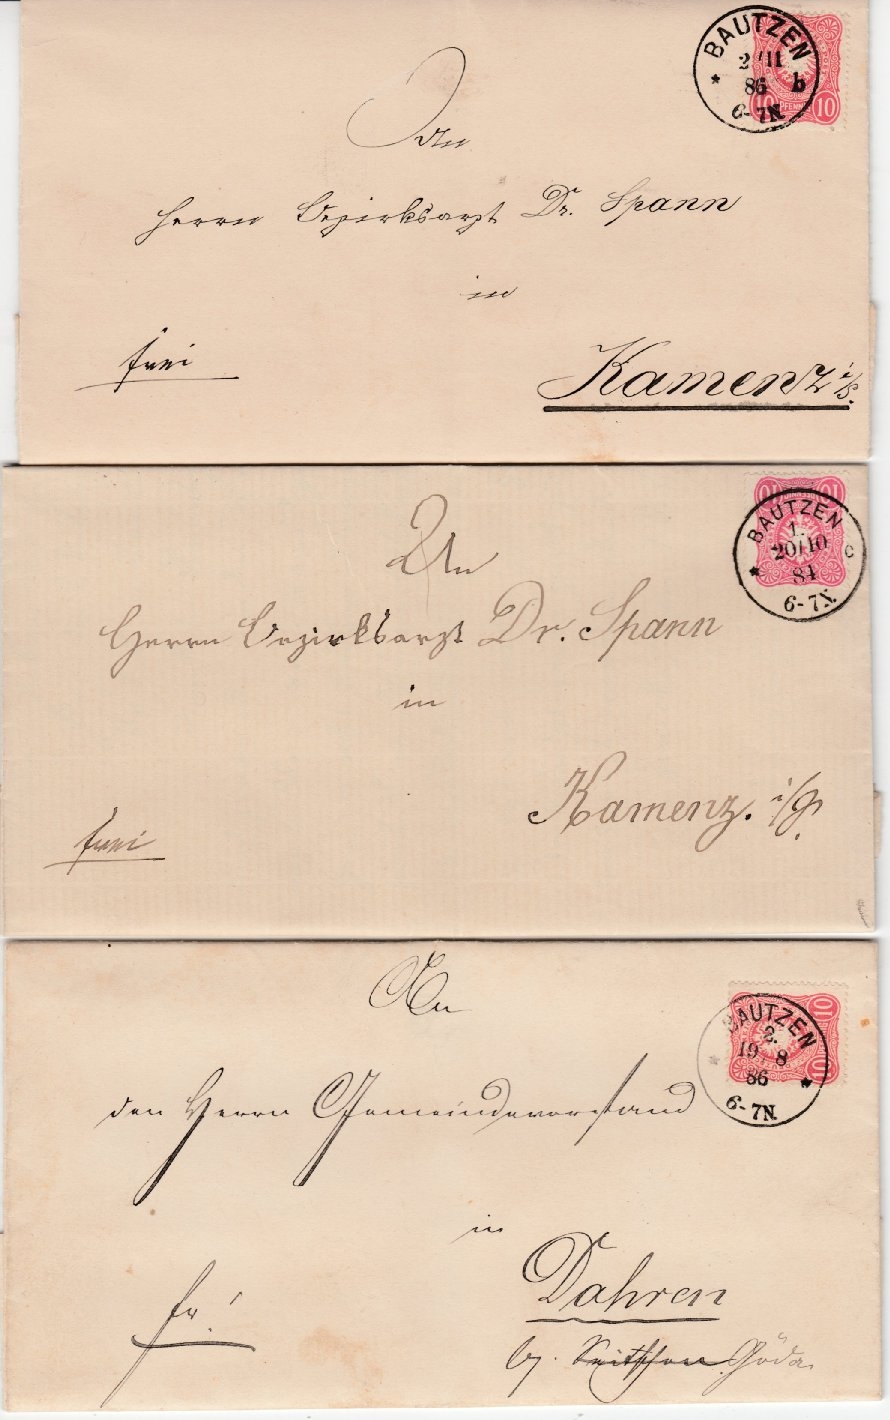 BAUTZEN
2/11
86 b
6-7N.
10 PFENNIG 10
An
Herrn Bezirksarzt Dr. Spann
in
frei
Kamenz i/S.
10 PFENNIG 10
BAUTZEN
1.
20/10 c
84
6-7N.
An
Herrn Bezirksarzt Dr. Spann
in
Kamenz. i/S.
frei
10
BAUTZEN
2.
19 8
86
10
6-7N.
An
den Herrn Gemeindevorstand
in
Dahren
fr!
b/. Seitschen Göda.